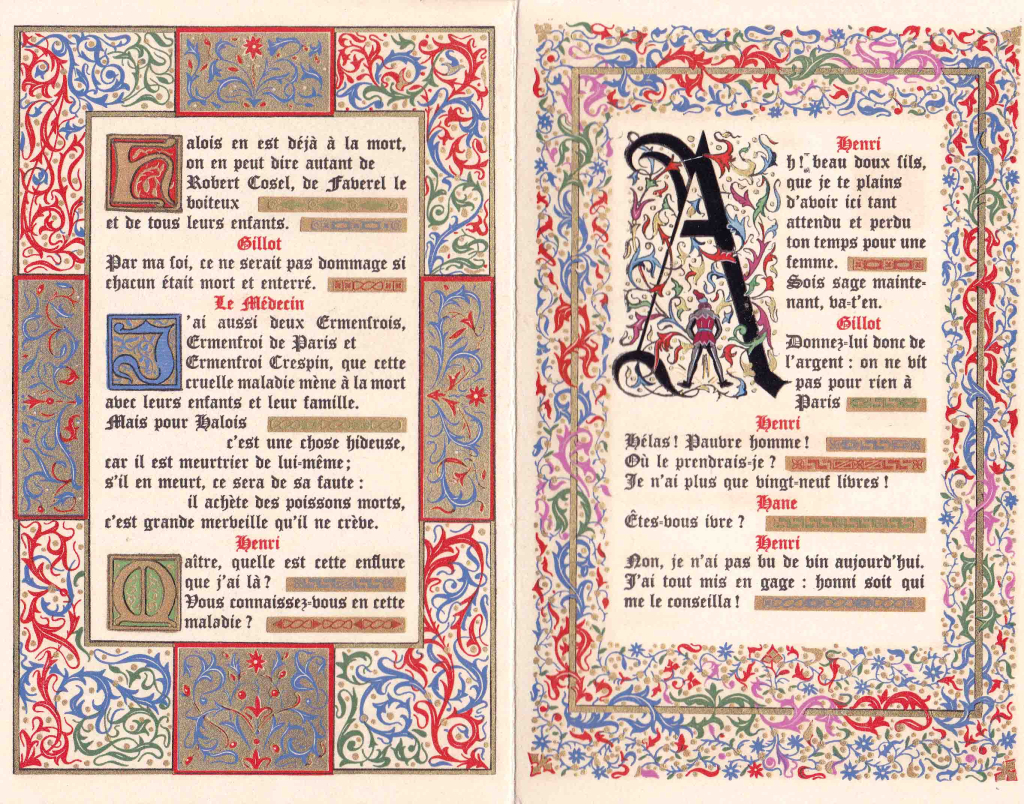 Halois en est déjà à la mort,
on en peut dire autant de
Robert Cosel, de Faverel le
boiteux
et de tous leurs enfants.
Gillot
Par ma foi, ce ne serait pas dommage si
chacun était mort et enterré.
Le Médecin
J'ai aussi deux Ermenfrois,
Ermenfroi de Paris et
Ermenfroi Crespin, que cette
cruelle maladie mène à la mort
avec leurs enfants et leur famille.
Mais pour Halois
c'est une chose hideuse,
car il est meurtrier de lui-même;
s'il en meurt, ce sera de sa faute :
il achète des poissons morts,
c'est grande merveille qu'il ne crève.
Henri
Maître, quelle est cette enflure
que j'ai là ?
Vous connaissez-vous en cette
maladie ?
Henri
Ah! beau doux fils,
que je te plains
d'avoir ici tant
attendu et perdu
ton temps pour une
femme.
Sois sage mainte-
nant, va-t'en.
Gillot
Donnez-lui donc de
l'argent : on ne vit
pas pour rien à
Paris
Henri
Hélas! Pauvre homme!
Où le prendrais-je ?
Je n'ai plus que vingt-neuf livres !
Hane
Êtes-vous ivre ?
Henri
Non, je n'ai pas bu de vin aujourd'hui.
J'ai tout mis en gage : honni soit qui
me le conseilla!